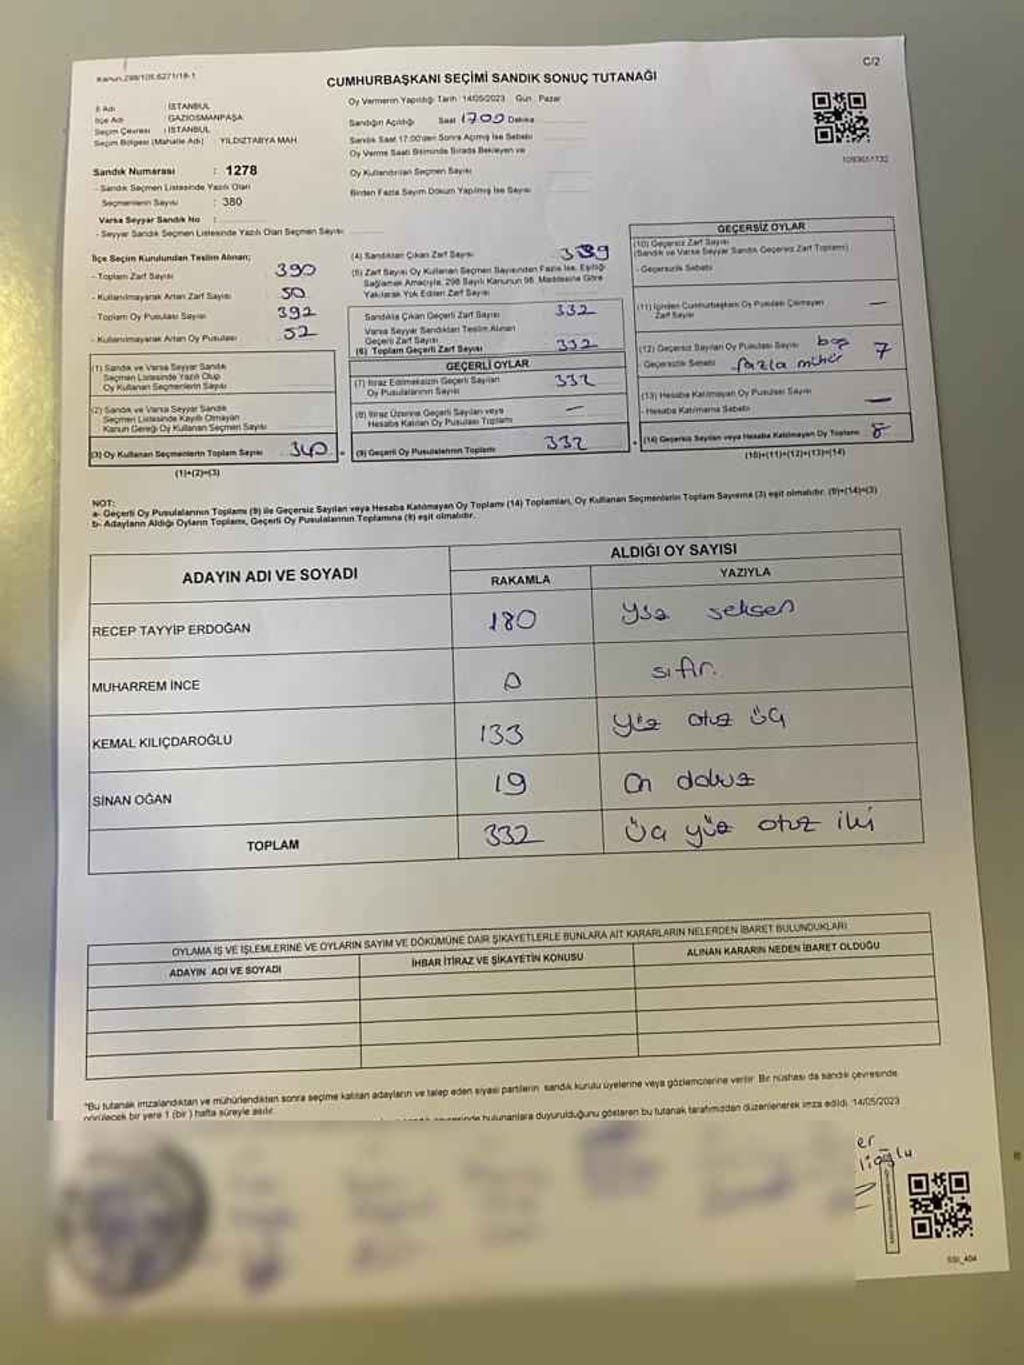 Kanun.298/105.6271/18-1
C/2
CUMHURBAŞKANI SEÇİMİ SANDIK SONUÇ TUTANAĞI
İl Adı İSTANBUL
İlçe Adı GAZİOSMANPAŞA
Seçim Çevresi : İSTANBUL
Seçim Bölgesi (Mahalle Adı) : YILDIZTABYA MAH
Oy Vermenin Yapıldığı Tarih : 14/05/2023 Gün : Pazar
Sandığın Açıldığı Saat 17 00 Dakika
Sandık Saat 17:00'den Sonra Açılmış İse Sebebi
Oy Verme Saati Bitiminde Sırada Bekleyen ve
Oy Kullandırılan Seçmen Sayısı
Birden Fazla Sayım Döküm Yapılmış İse Sayısı
Sandık Numarası : 1278
- Sandık Seçmen Listesinde Yazılı Olan
Seçmenlerin Sayısı : 380
Varsa Seyyar Sandık No :
- Seyyar Sandık Seçmen Listesinde Yazılı Olan Seçmen Sayısı
İlçe Seçim Kurulundan Teslim Alınan;
- Toplam Zarf Sayısı 390
- Kullanılmayarak Artan Zarf Sayısı 50
- Toplam Oy Pusulası Sayısı 392
- Kullanılmayarak Artan Oy Pusulası 52
(1) Sandık ve Varsa Seyyar Sandık
Seçmen Listesinde Yazılı Olup
Oy Kullanan Seçmenlerin Sayısı
(2) Sandık ve Varsa Seyyar Sandık
Seçmen Listesinde Kayıtlı Olmayan
Kanun Gereği Oy Kullanan Seçmen Sayısı
(3) Oy Kullanan Seçmenlerin Toplam Sayısı 340
(1)+(2)=(3)
(4) Sandıktan Çıkan Zarf Sayısı 339
(5) Zarf Sayısı Oy Kullanan Seçmen Sayısından Fazla İse, Eşitliği
Sağlamak Amacıyla, 298 Sayılı Kanunun 98. Maddesine Göre
Yakılarak Yok Edilen Zarf Sayısı
Sandıkta Çıkan Geçerli Zarf Sayısı 332
Varsa Seyyar Sandıktan Teslim Alınan
Geçerli Zarf Sayısı
(6) Toplam Geçerli Zarf Sayısı 332
GEÇERLİ OYLAR
(7) İtiraz Edilmeksizin Geçerli Sayılan
Oy Pusulalarının Sayısı 332
(8) İtiraz Üzerine Geçerli Sayılan veya
Hesaba Katılan Oy Pusulası Toplamı —
(9) Geçerli Oy Pusulalarının Toplamı 332
GEÇERSİZ OYLAR
(10) Geçersiz Zarf Sayısı
(Sandık ve Varsa Seyyar Sandık Geçersiz Zarf Toplamı)
- Geçersizlik Sebebi
(11) İçinden Cumhurbaşkanı Oy Pusulası Çıkmayan
Zarf Sayısı —
(12) Geçersiz Sayılan Oy Pusulası Sayısı boş 7
- Geçersizlik Sebebi fazla mühür
(13) Hesaba Katılmayan Oy Pusulası Sayısı
- Hesaba Katılmama Sebebi —
(14) Geçersiz Sayılan veya Hesaba Katılmayan Oy Toplamı 8
(10)+(11)+(12)+(13)=(14)
NOT:
a- Geçerli Oy Pusulalarının Toplamı (9) ile Geçersiz Sayılan veya Hesaba Katılmayan Oy Toplamı (14) Toplamları, Oy Kullanan Seçmenlerin Toplam Sayısına (3) eşit olmalıdır. (9)+(14)=(3)
b- Adayların Aldığı Oyların Toplamı, Geçerli Oy Pusulalarının Toplamına (9) eşit olmalıdır.
ADAYIN ADI VE SOYADI
ALDIĞI OY SAYISI
RAKAMLA YAZIYLA
RECEP TAYYİP ERDOĞAN 180 yüz seksen
MUHARREM İNCE 0 sıfır.
KEMAL KILIÇDAROĞLU 133 yüz otuz üç
SİNAN OĞAN 19 On dokuz
TOPLAM 332 Üç yüz otuz iki
OYLAMA İŞ VE İŞLEMLERİNE VE OYLARIN SAYIM VE DÖKÜMÜNE DAİR ŞİKAYETLERLE BUNLARA AİT KARARLARIN NELERDEN İBARET BULUNDUKLARI
ADAYIN ADI VE SOYADI İHBAR İTİRAZ VE ŞİKAYETİN KONUSU ALINAN KARARIN NEDEN İBARET OLDUĞU
"Bu tutanak imzalandıktan ve mühürlendikten sonra seçime katılan adayların ve talep eden siyasi partilerin sandık kurulu üyelerine veya gözlemcilerine verilir. Bir nüshası da sandık çevresinde
görülecek bir yere 1 (bir) hafta süreyle asılır.
bulunanlara duyurulduğunu gösteren bu tutanak tarafımızdan düzenlenerek imza edildi. 14/05/2023